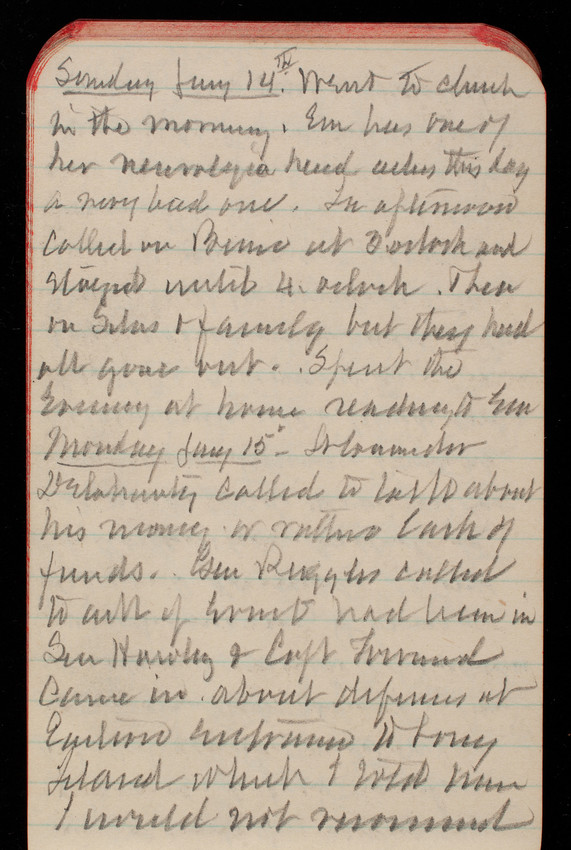 Sunday Jany 14th. Went to church
in the morning. Em has one of
her neuralgia head aches this day
a very bad one. In afternoon
called on Bernie at 3 oclock and
stayed until 4. oclock. Then
on Silas & family but they had
all gone out. Spent the
Evening at home reading to Em
Monday Jany 15" - Alexander
called to talk about
his money or rather lack of
funds. Gen Ruggles called
to ask if had been in
Gen Hawley & Capt
Came in about defenses at
Eastern entrance to Long
Island which I told him
I would not recommend